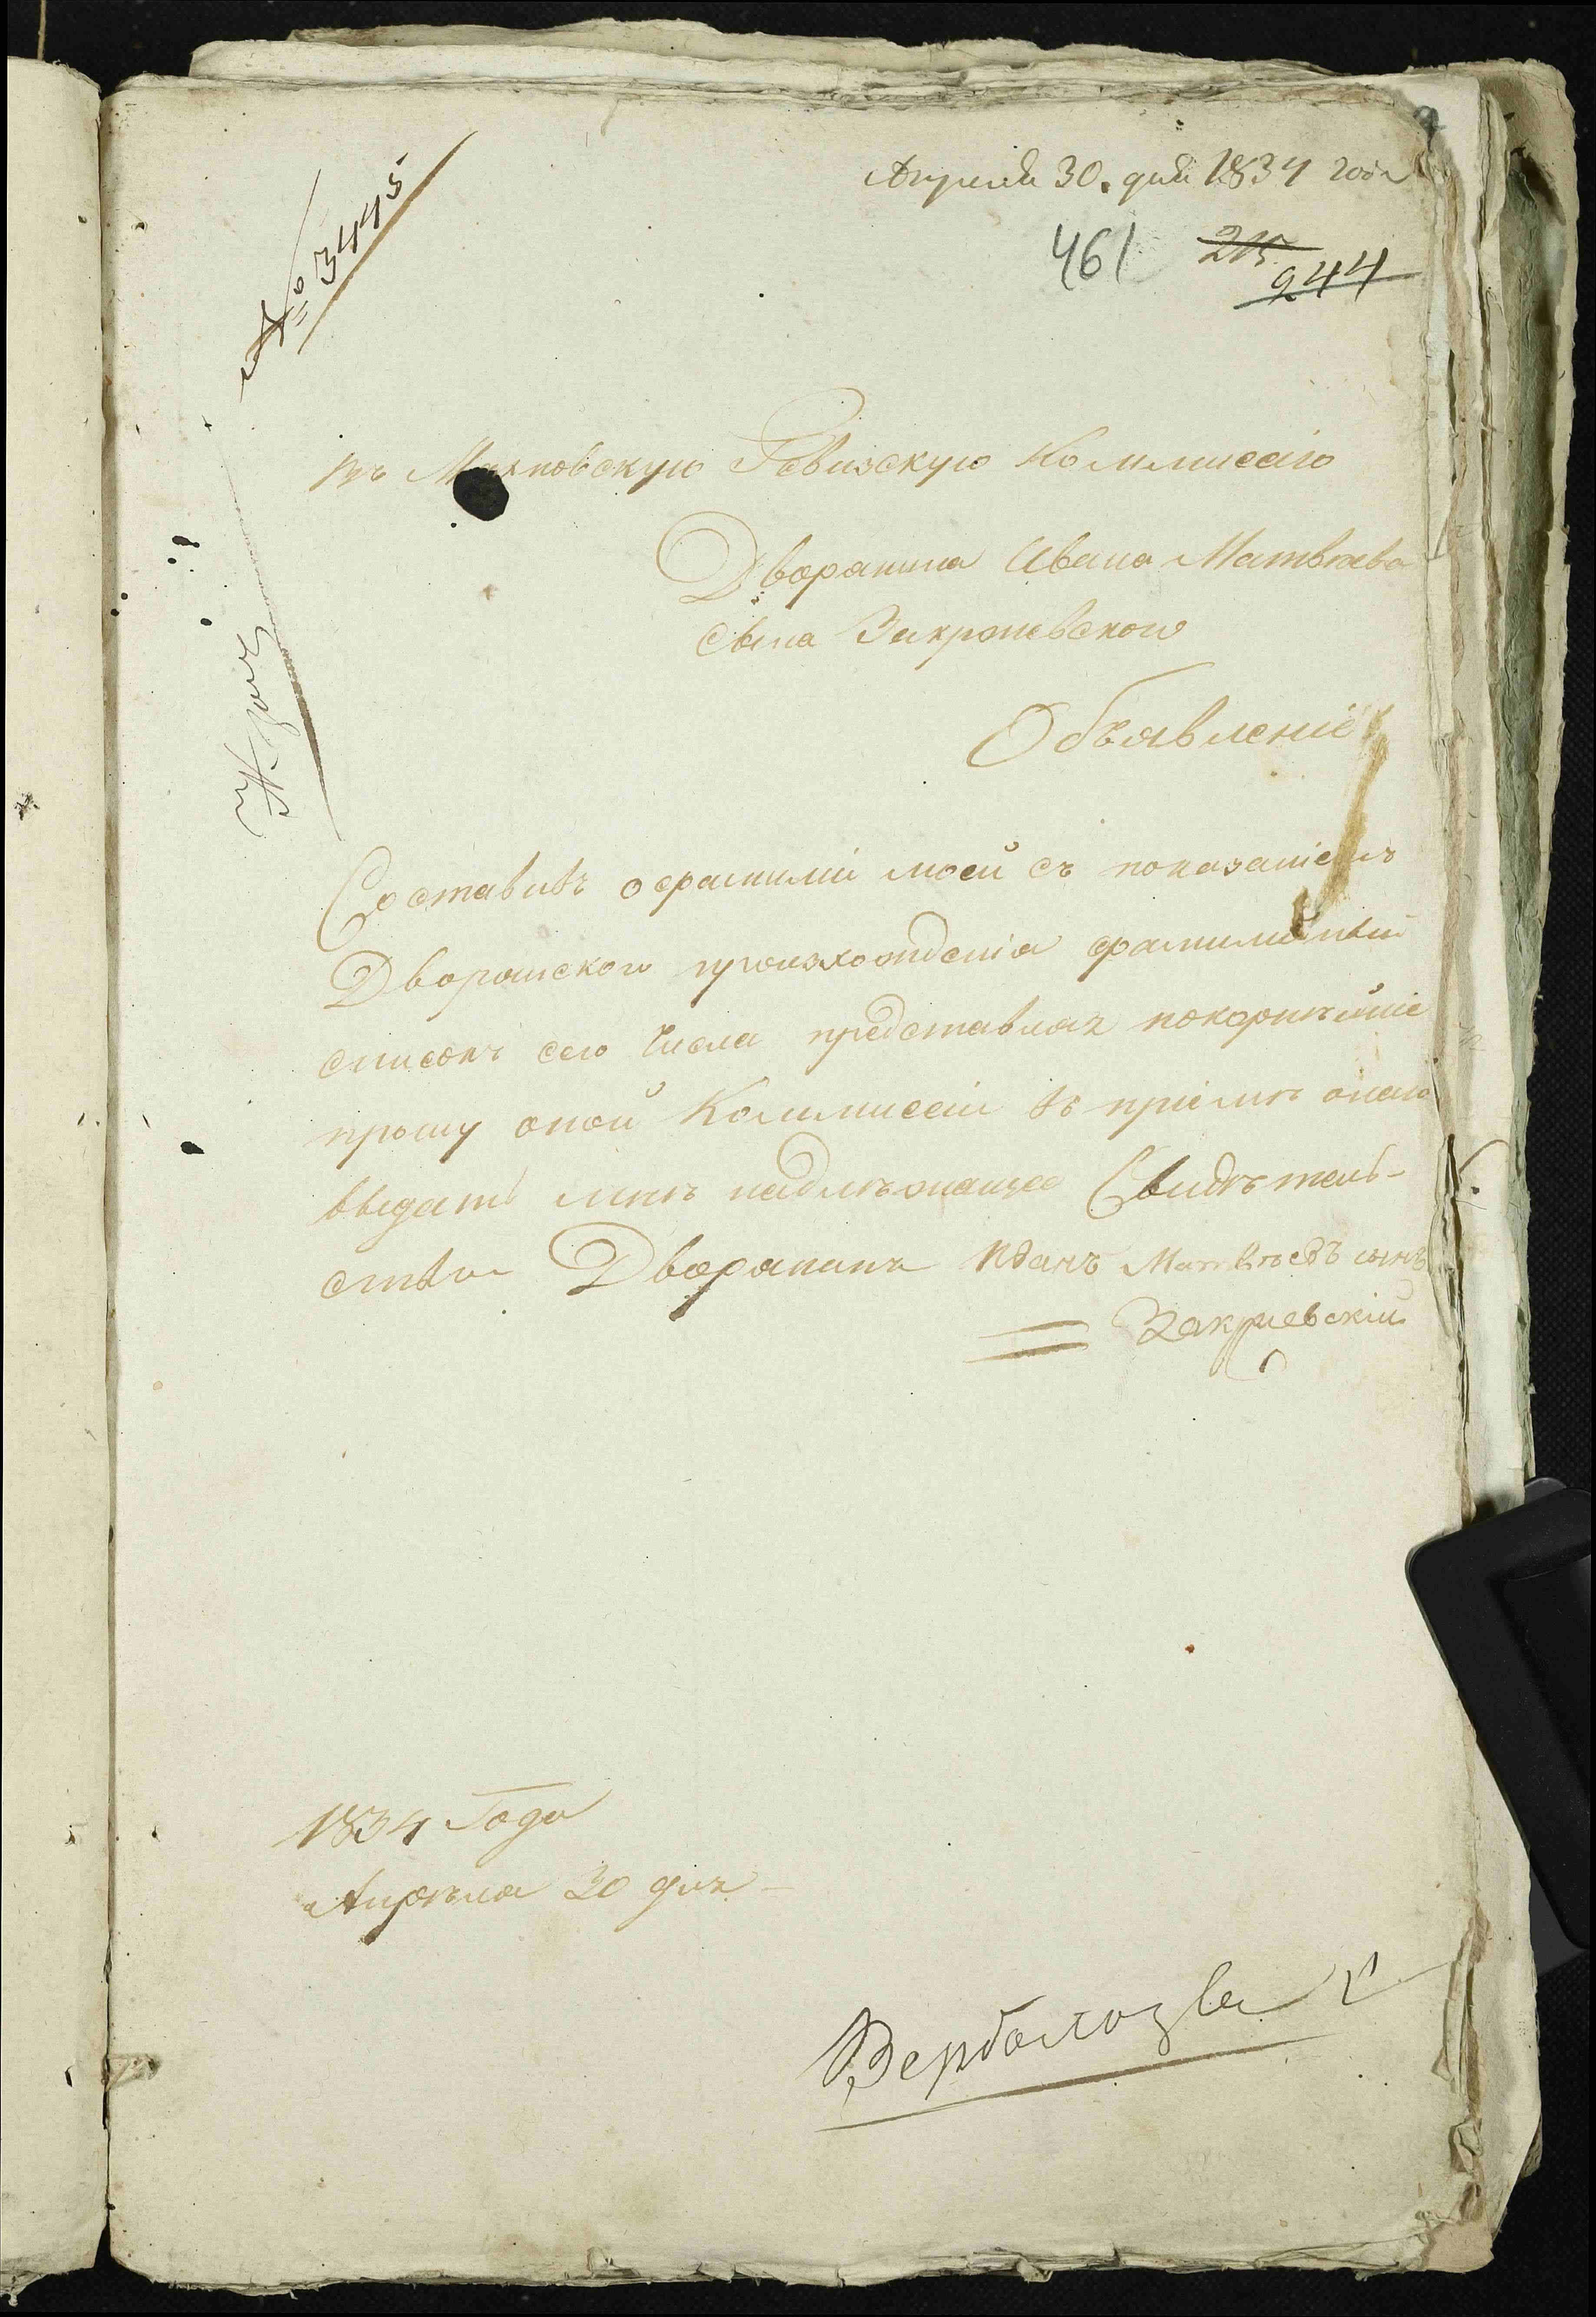 Апреля 30. дня 1834 года
№ 3445
461 215 244
въ Махновскую Ревизскую Коммисію
Дворянина Ивана Матвѣева
сына Закржевского
Объявленіе
Составивъ о фамиліи моей съ показаніемъ
Дворянского происхожденія фамилійный
списокъ сего числа представляя покорнѣйше
прошу оной Коммисіи въ пріемѣ оного
выдать мнѣ надлѣжащее Свидѣтель-
ство Дворянинъ Иванъ Матвѣевъ сынъ
Закржевскій
1834 Года
Апрѣля 30 дня
Верболозы